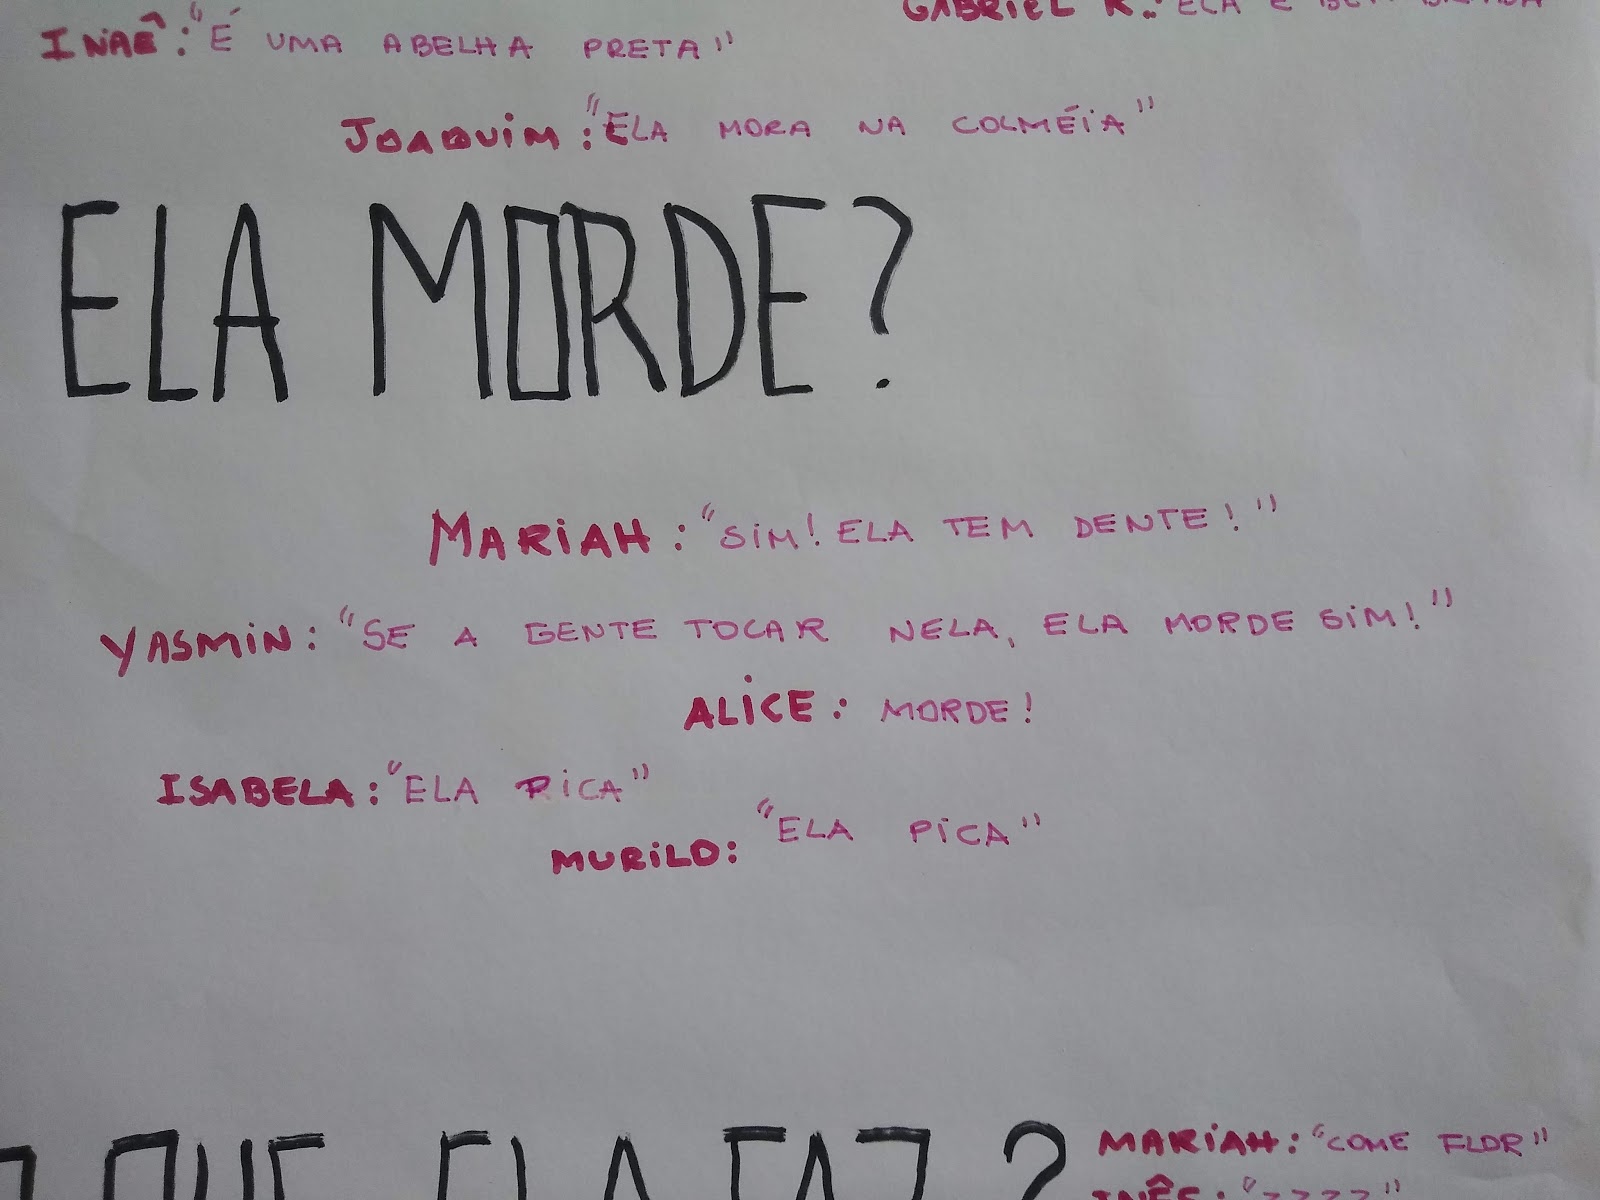 GABRIEL R.: ELA É
INAÊ: "É UMA ABELHA PRETA"
JOAQUIM: "ELA MORA NA COLMÉIA"
ELA MORDE?
MARIAH: "SIM! ELA TEM DENTE!"
YASMIN: "SE A GENTE TOCAR NELA, ELA MORDE SIM!"
ALICE: MORDE!
ISABELA: "ELA PICA"
MURILO: "ELA PICA"
O QUE ELA FAZ?
MARIAH: "COME FLOR"
INÊS: "ZZZZ"